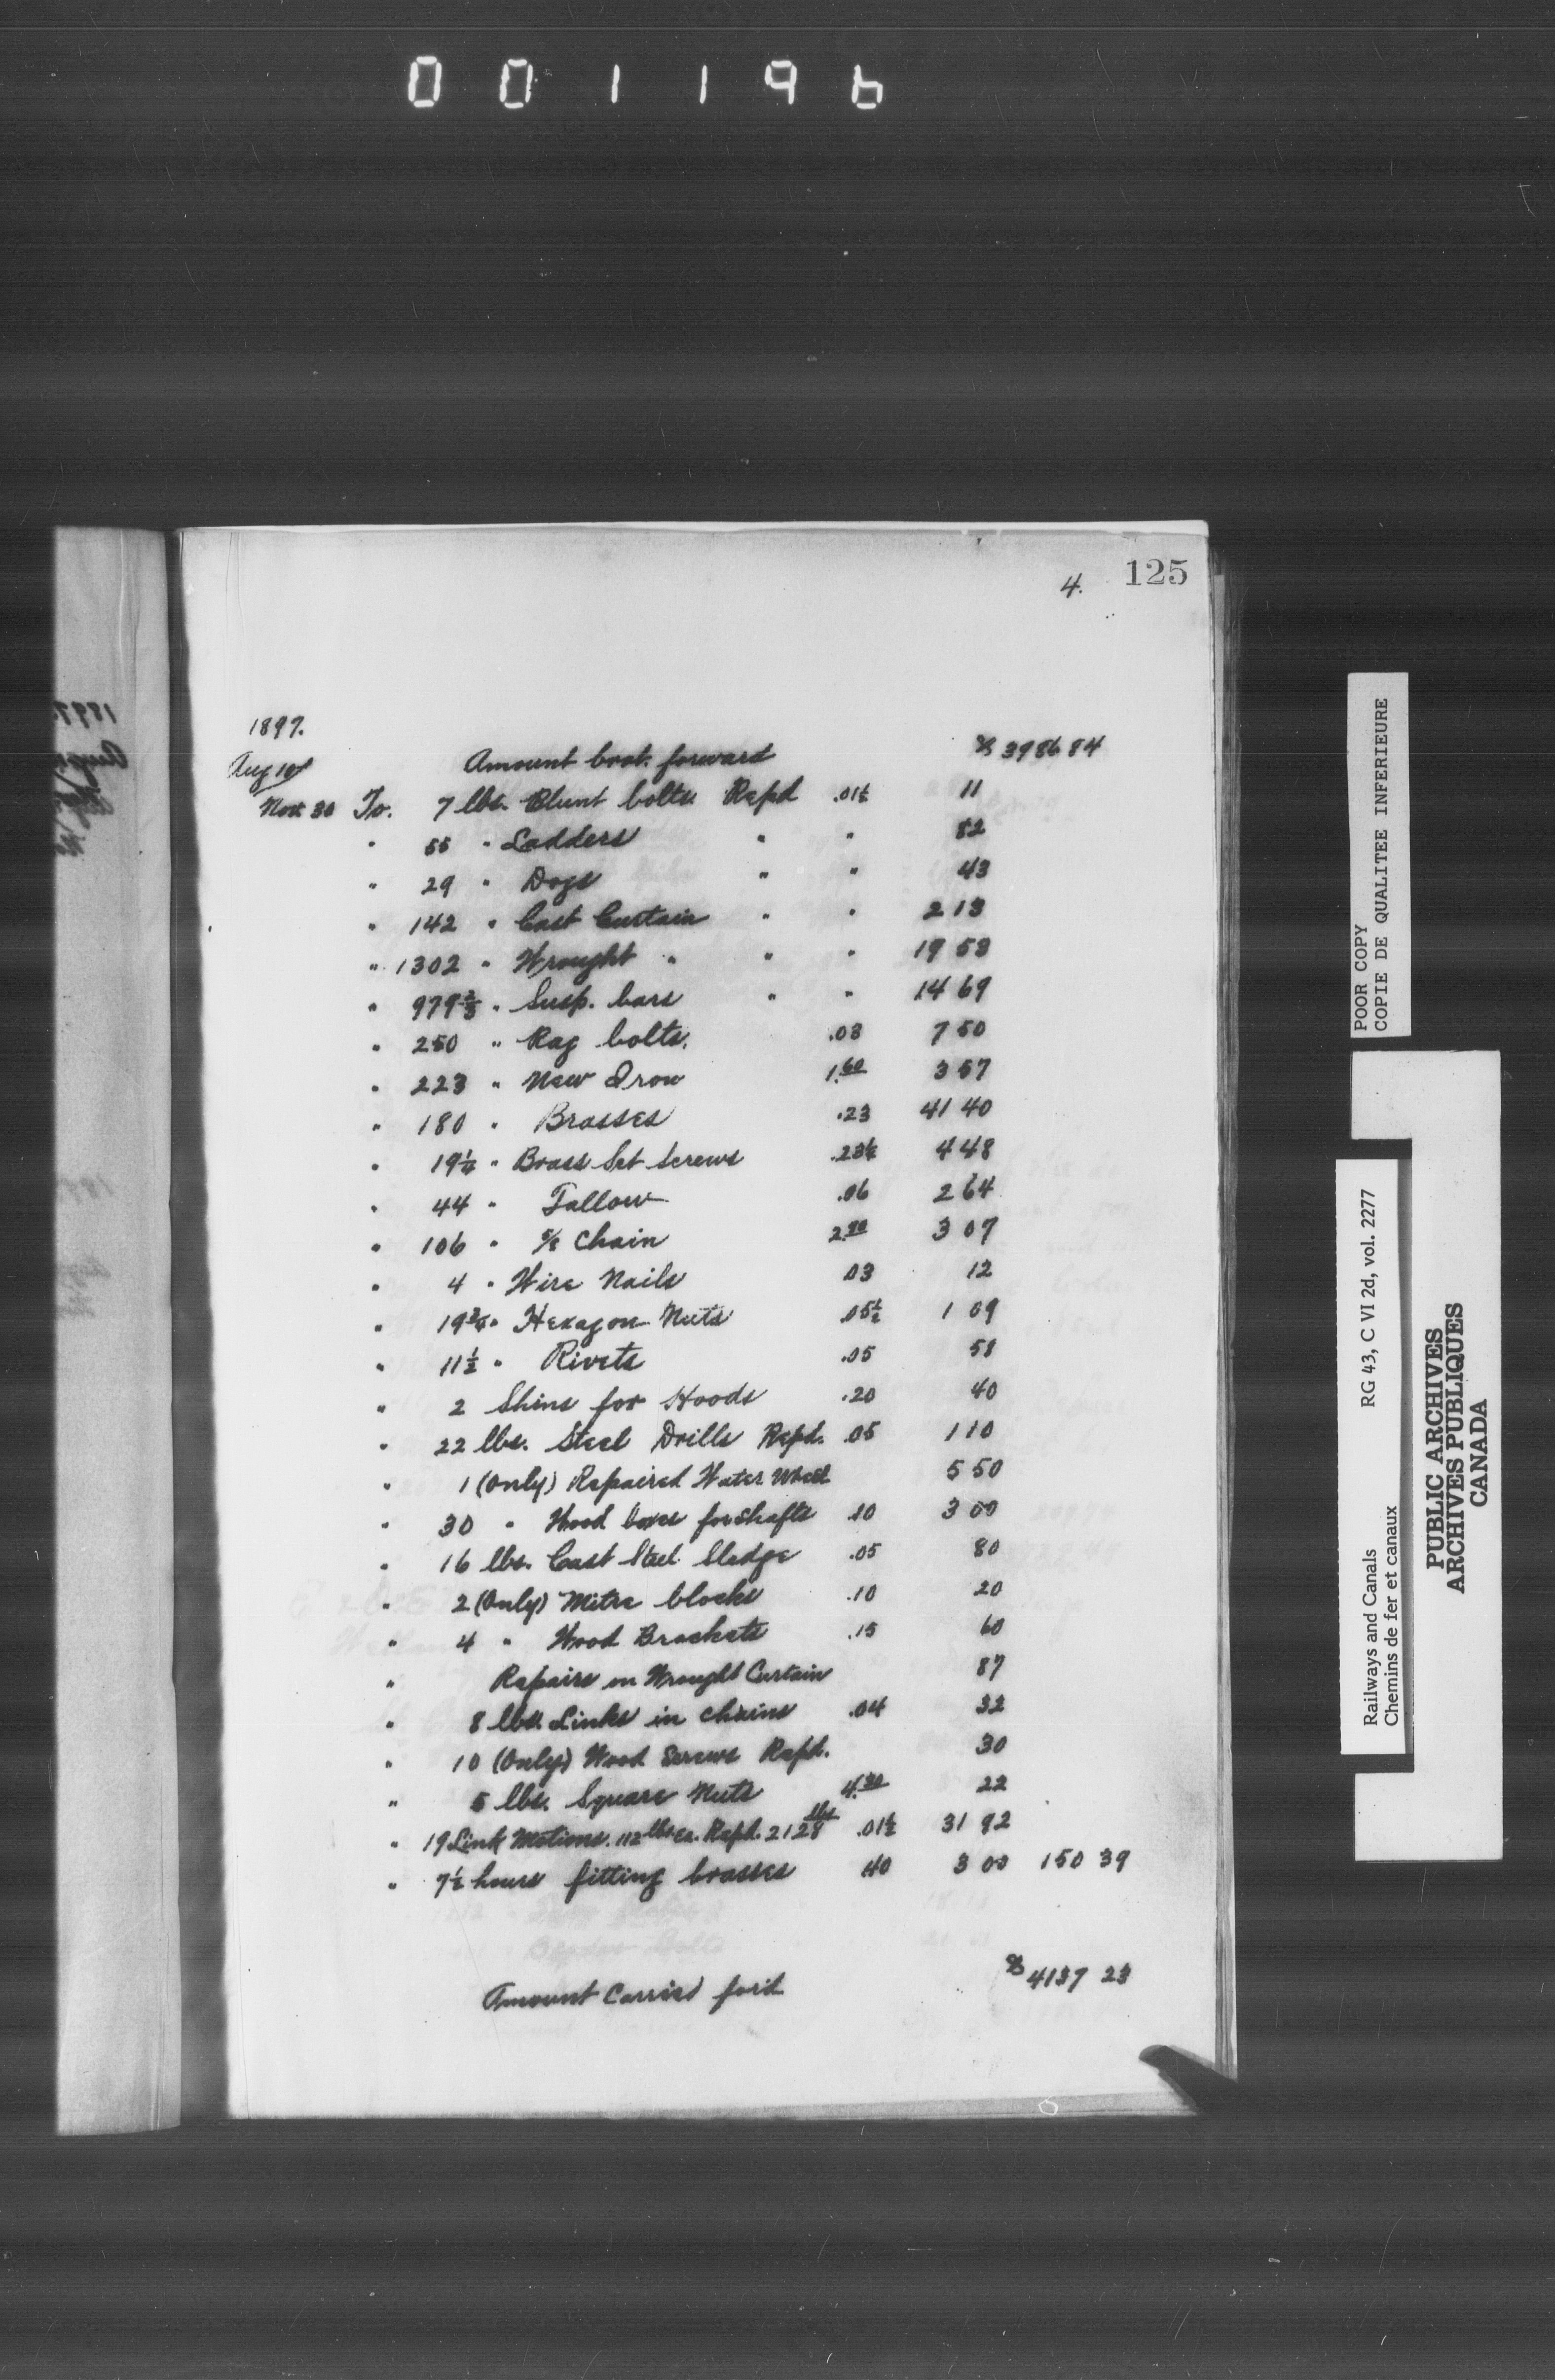 001196
4. 125
1897.
Aug 10/ Amount brot. forward $ 3986 84
Nov 30 To. 7 lbs. Blunt bolts Repd .01½ 11
" 55 " Ladders " " 82
" 29 " Dogs " " 43
" 142 " Cast Curtain " " 2 13
" 1302 " Wrought " " " 19 53
" 979⅔ " Susp. bars " " 14 69
" 250 " Rag bolts. .03 7 50
" 223 " New Iron 1.60 3 57
" 180 " Brasses .23 41 40
" 19¼ " Brass Set Screws .23¼ 4 48
" 44 " Tallow .06 2 64
" 106 " ⅝ Chain 2.90 3 07
" 4 " Wire Nails .03 12
" 19¾ " Hexagon Nuts .05½ 1 09
" 11½ " Rivets .05 58
" 2 Shins for Hoods .20 40
" 22 lbs. Steel Drills Repd. .05 1 10
" 1 (Only) Repaired Water Wheel 5 50
" 30 " Wood boxes for Shafts .10 3 00
" 16 lbs. Cast Steel Sledge .05 80
" 2 (Only) Mitre blocks .10 20
" 4 " Wood Brackets .15 60
" Repairs on Wrought Curtain 87
" 8 lbs. Links in chains .04 32
" 10 (Only) Wood Screws Repd. 30
" 5 lbs. Square Nuts 4.30 22
" 19 Link Motions. 112 lbs ea. Repd. 2128 lbs .01½ 31 92
" 7½ hours fitting brasses 40 3 00 150 39
Amount Carried for'd $ 4137 23
POOR COPY
COPIE DE QUALITEE INFERIEURE
Railways and Canals RG 43, C VI 2d, vol. 2277
Chemins de fer et canaux
PUBLIC ARCHIVES
ARCHIVES PUBLIQUES
CANADA